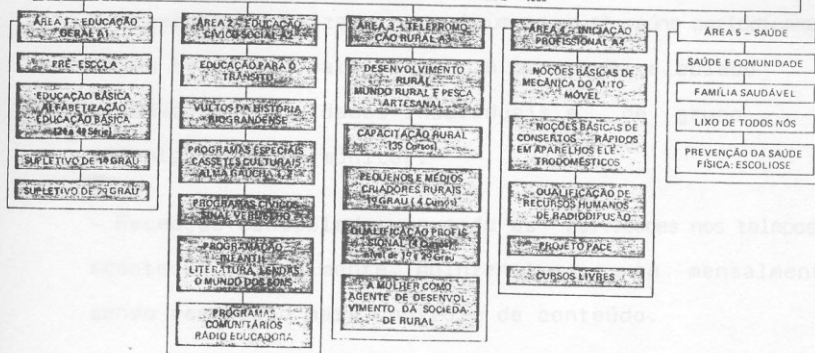 ÁREA 1 – EDUCAÇÃO
GERAL A1
PRÉ-ESCOLA
EDUCAÇÃO BÁSICA
ALFABETIZAÇÃO
EDUCAÇÃO BÁSICA
(2ª a 4ª Série)
SUPLETIVO DE 1º GRAU
SUPLETIVO DE 2º GRAU
ÁREA 2 – EDUCAÇÃO
CÍVICO SOCIAL A2
EDUCAÇÃO PARA O
TRÂNSITO
VULTOS DA HISTÓRIA
RIOGRANDENSE
PROGRAMAS ESPECIAIS
CASSETES CULTURAIS
ALMA GAÚCHA 1, 2
PROGRAMAS CÍVICOS
SINAL VERMELHO
PROGRAMAÇÃO
INFANTIL
LITERATURA, LENDAS
O MUNDO DOS SONS
PROGRAMAS
COMUNITÁRIOS
RÁDIO EDUCADORA
ÁREA 3 – TELEPROMO
ÇÃO RURAL A3
DESENVOLVIMENTO
RURAL
MUNDO RURAL E PESCA
ARTESANAL
CAPACITAÇÃO RURAL
(35 Cursos)
PEQUENOS E MÉDIOS
CRIADORES RURAIS
1º GRAU ( 4 Cursos)
QUALIFICAÇÃO PROFIS
SIONAL (4 Cursos)
nível de 1º e 2º Grau
A MULHER COMO
AGENTE DE DESENVOL
VIMENTO DA SOCIEDA
DE RURAL
ÁREA 4 – INICIAÇÃO
PROFISSIONAL A4
NOÇÕES BÁSICAS DE
MECÂNICA DO AUTO
MÓVEL
NOÇÕES BÁSICAS DE
CONSERTOS RÁPIDOS
EM APARELHOS ELE
TRODOMÉSTICOS
QUALIFICAÇÃO DE
RECURSOS HUMANOS
DE RADIODIFUSÃO
PROJETO PACE
CURSOS LIVRES
ÁREA 5 – SAÚDE
SAÚDE E COMUNIDADE
FAMÍLIA SAUDÁVEL
LIXO DE TODOS NÓS
PREVENÇÃO DA SAÚDE
FÍSICA: ESCOLIOSE
nos telepos
mensalmen
de conteúdo.